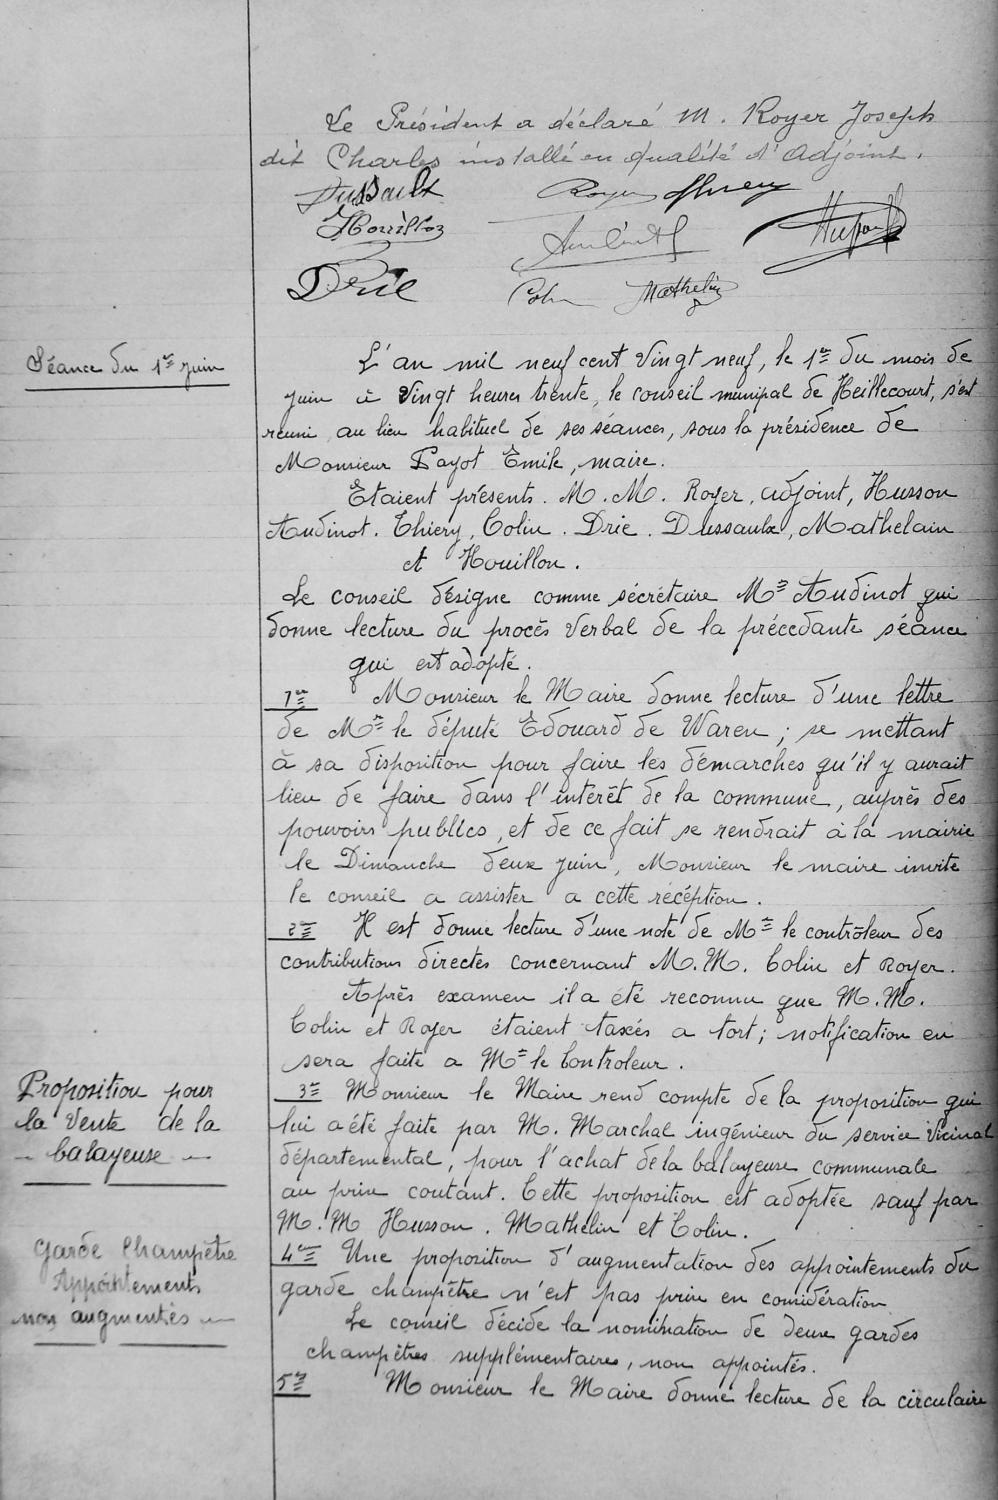 Le Président a déclaré M. Royer Joseph
dit Charles installé en qualité d'Adjoint.
Dussaulx
Royer Thiery
Houillon
Audinot
Drie
Colin
Mathelin
Séance du 1er juin
L'an mil neuf cent vingt neuf, le 1er du mois de
juin à vingt heures trente, le conseil munipal de Heillecourt, s'est
réuni au lieu habituel de ses séances, sous la présidence de
Monsieur Payot Emile, maire.
Etaient présents. M.M. Royer, adjoint, Husson
Audinot. Thiery, Colin. Drie. Dussaulx, Mathelain
et Houillon.
Le conseil désigne comme sécrétaire Mr Audinot qui
donne lecture du procès verbal de la précédante séance
qui est adopté.
1er Monsieur le Maire donne lecture d'une lettre
de Mr le député Edouard de Waren; se mettant
à sa disposition pour faire les démarches qu'il y aurait
lieu de faire dans l'interêt de la commune, auprès des
pouvoirs publics, et de ce fait se rendrait à la mairie
le Dimanche deux juin, Monsieur le maire invite
le conseil a assister a cette récéption.
2me Il est donne lecture d'une note de Mr le contrôleur des
contributions directes concernant M.M. Colin et Royer.
Après examen il a été reconnu que M.M.
Colin et Royer étaient taxés a tort; notification en
sera faite a Mr le Controleur.
3me Monsieur le Maire rend compte de la proposition qui
lui a été faite par M. Marchal ingénieur du service vicinal
départemental, pour l'achat de la balayeuse communale
au prix coutant. Cette proposition est adoptée sauf par
M.M Husson. Mathelin et Colin.
Proposition pour
la vente de la
balayeuse
4me Une proposition d'augmentation des appointements du
garde champêtre n'est pas prise en considération
Le conseil décide la nomination de deux gardes
champêtres supplémentaires, non appointés.
Garde Champêtre
Appointements
non augmentés
5me Monsieur le Maire donne lecture de la circulaire